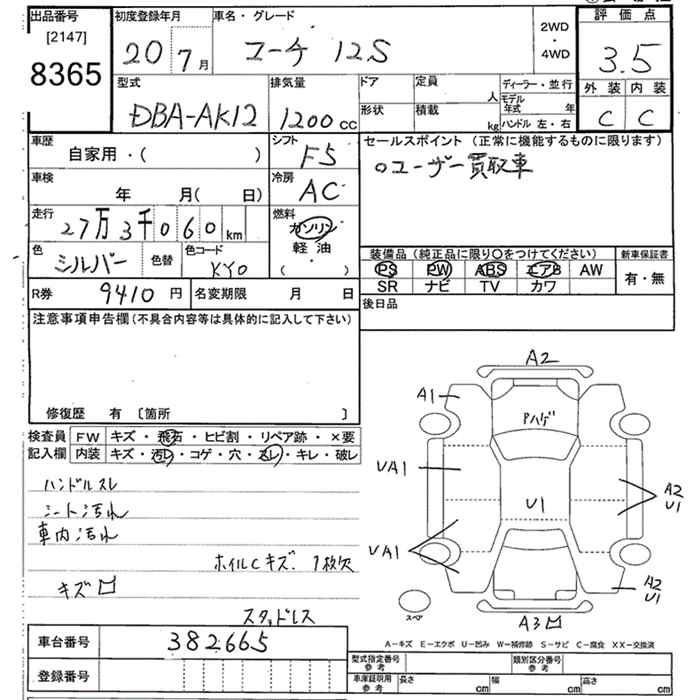 出品番号 初度登録年月 車名・グレード 2WD・4WD 評価点
[2147]
8365 20 7月 マーチ 12S 3.5
型式 排気量 ドア 定員 人 ディーラー・並行 外装 内装
DBA-AK12 1200cc 形状 積載 kg モデル年式 年 C C
ハンドル 左・右
車歴 シフト セールスポイント (正常に機能するものに限ります)
自家用・( ) F5 ○ユーザー買取車
車検 年 月(日) 冷房 AC
走行 27万3千060km 燃料 ガソリン
軽油・( )
色 シルバー 色替 色コード KY0
装備品 (純正品に限り○をつけてください) 新車保証書
PS PW ABS エアB AW 有・無
SR ナビ TV カワ
R券 9410円 名変期限 月 日 後日品
注意事項申告欄 (不具合内容等は具体的に記入して下さい)
修復歴 有 [箇所 ]
検査員 FW キズ・飛石・ヒビ割・リペア跡・×要
記入欄 内装 キズ・汚レ・コゲ・穴・スレ・キレ・破レ
ハンドルスレ
シート汚れ
車内汚れ
ホイルCキズ 1枚欠
キズ
スタッドレス
車台番号 382665
登録番号
A2
A1
Pハゲ
UA1
U1
A2
U1
UA1
A2
U1
スペア
A3
A-キズ E-エクボ U-凹み W-補修跡 S-サビ C-腐食 XX-交換済
型式指定番号 参考 類別区分番号 参考
車庫証明用 参考 長さ cm 幅 cm 高さ cm